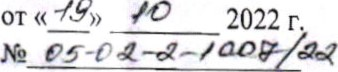 от «19» 10 2022 г.
№ 05-02-2-1007/22